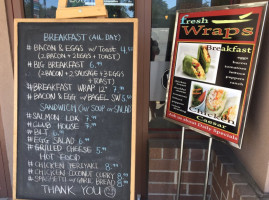 BREAKFAST (ALL DAY)
* BACON & EGGS w/ TOAST 4.50
(2 BACON + 2 EGGS + TOAST)
* BIG BREAKFAST 6.99
(2 BACON + 2 SAUSAGE + 3 EGGS + TOAST)
* BREAKFAST WRAP 12" 7.99
* BACON & EGG w/ BAGEL SW
SANDWICH (w/ SOUP or SALAD)
* SALMON LOX 7.99
* CLUB HOUSE 7.99
* BLT 6.99
* EGG SALAD 6.99
* GRILLED CHEESE 5.99
HOT FOOD
* CHICKEN TERIYAKI 8.99
* CHICKEN COCONUT CURRY 8.99
* SPAGHETTI w/ GARLIC BREAD 8.99
THANK YOU
fresh
Wraps
Breakfast
Chicken
Caesar
Ask about Daily Specials